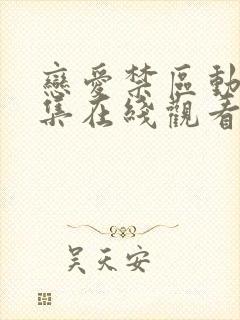 戀愛禁區動
集在綫觀看
吴天安